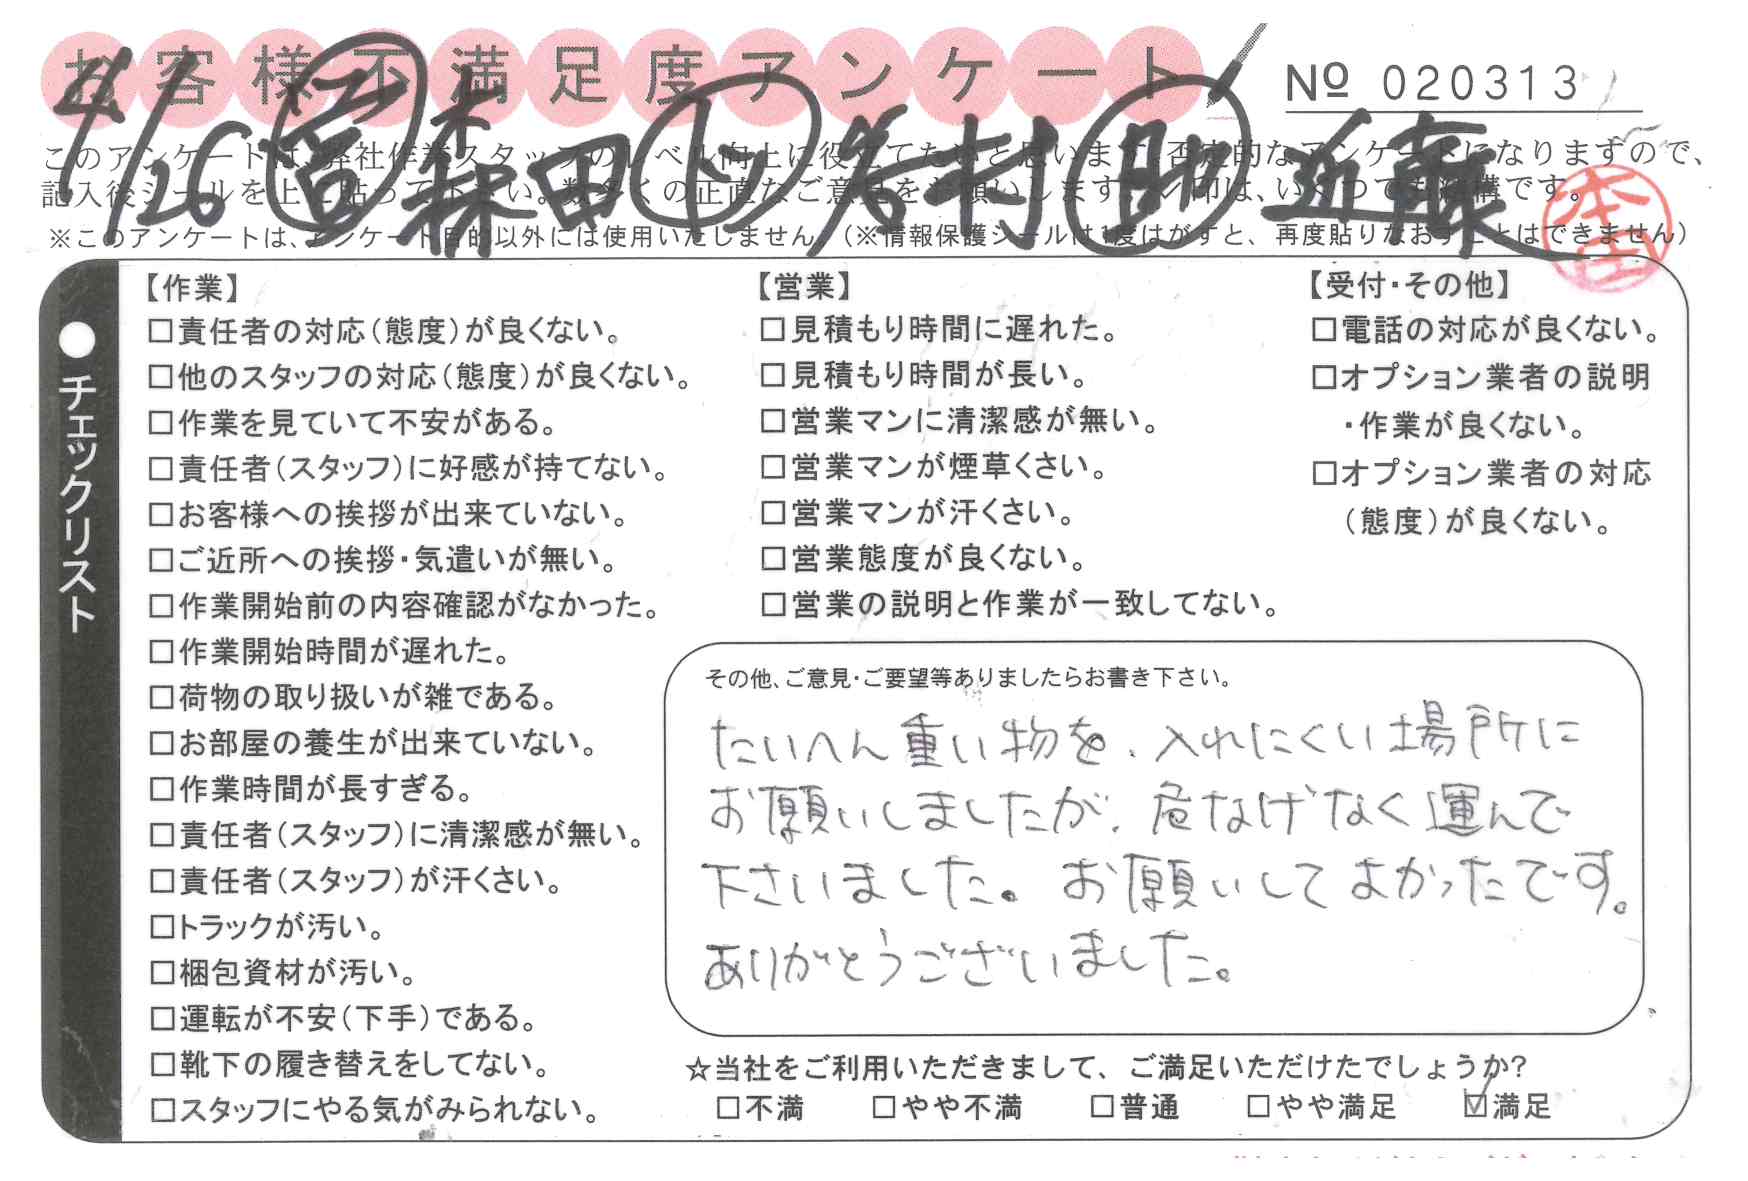 お客様不満足度アンケート
№ 020313
4/26 営 森田 ト 岩村 助 近藤
このアンケートは、弊社作業スタッフのレベル向上に役立てたいと思います。否定的なアンケートになりますので、
記入後シールを上に貼って下さい。数多くの正直なご意見をお願いします。レ印は、いくつでも結構です。
※このアンケートは、アンケート目的以外には使用いたしません。（※情報保護シールは1度はがすと、再度貼りなおすことはできません）
●チェックリスト
【作業】
□責任者の対応（態度）が良くない。
□他のスタッフの対応（態度）が良くない。
□作業を見ていて不安がある。
□責任者（スタッフ）に好感が持てない。
□お客様への挨拶が出来ていない。
□ご近所への挨拶・気遣いが無い。
□作業開始前の内容確認がなかった。
□作業開始時間が遅れた。
□荷物の取り扱いが雑である。
□お部屋の養生が出来ていない。
□作業時間が長すぎる。
□責任者（スタッフ）に清潔感が無い。
□責任者（スタッフ）が汗くさい。
□トラックが汚い。
□梱包資材が汚い。
□運転が不安（下手）である。
□靴下の履き替えをしてない。
□スタッフにやる気がみられない。
【営業】
□見積もり時間に遅れた。
□見積もり時間が長い。
□営業マンに清潔感が無い。
□営業マンが煙草くさい。
□営業マンが汗くさい。
□営業態度が良くない。
□営業の説明と作業が一致してない。
【受付・その他】
□電話の対応が良くない。
□オプション業者の説明
・作業が良くない。
□オプション業者の対応
（態度）が良くない。
その他、ご意見・ご要望等ありましたらお書き下さい。
たいへん重い物を、入れにくい場所に
お願いしましたが、危なげなく運んで
下さいました。お願いしてよかったです。
ありがとうございました。
☆当社をご利用いただきまして、ご満足いただけたでしょうか?
□不満 □やや不満 □普通 □やや満足 ☑満足